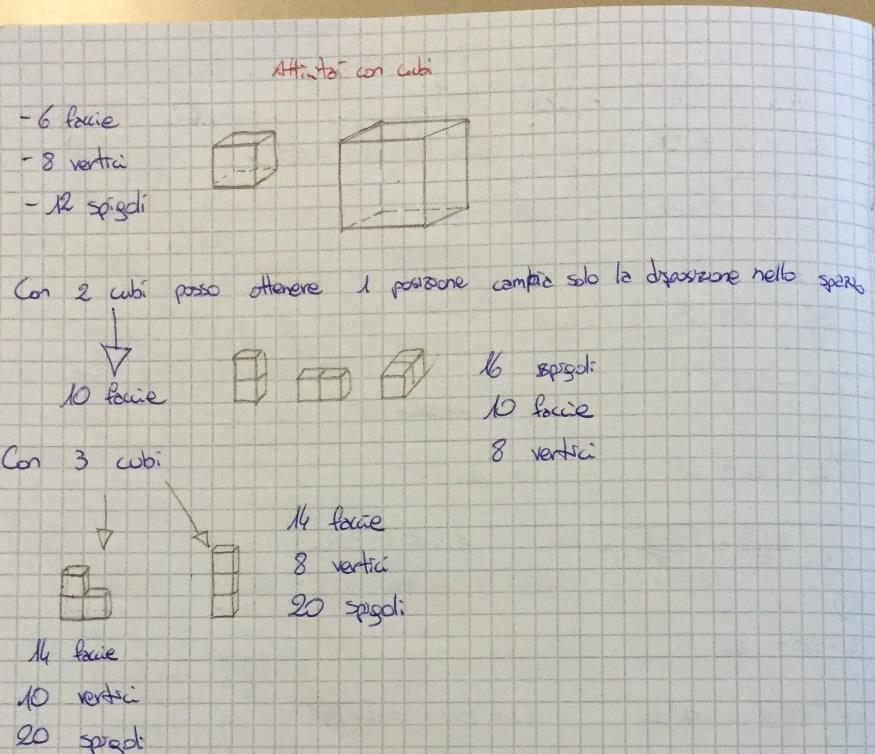 Attività con cubi
- 6 faccie
- 8 vertici
- 12 spigoli
Con 2 cubi posso ottenere 1 posizione cambia solo la disposizione nello spazio
10 faccie
16 spigoli
10 faccie
8 vertici
Con 3 cubi
14 faccie
8 vertici
20 spigoli
14 faccie
10 vertici
20 spigoli